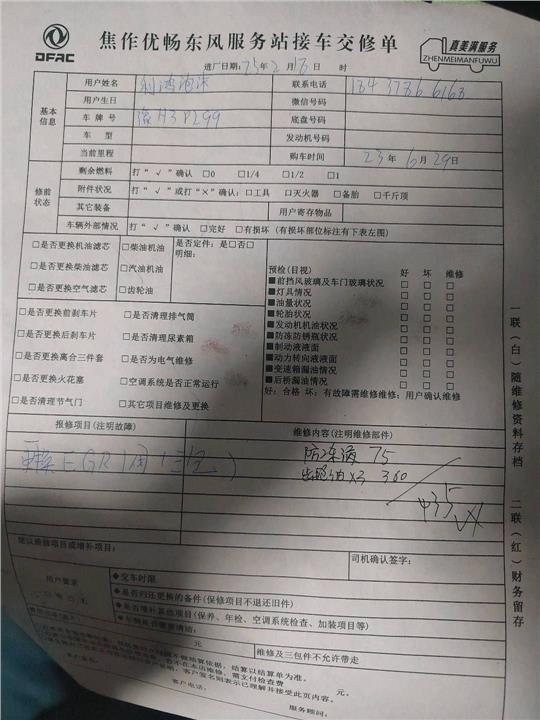 DFAC
焦作优畅东风服务站接车交修单
真美满服务
ZHENMEIMANFUWU
进厂日期: 25年2月18日 时
基本信息
用户姓名 联系电话
用户生日 微信号码
车牌号 豫H3P299 底盘号码
车型 发动机号码
当前里程 购车时间 23年6月29日
修前状态
剩余燃料 打“√”确认 □0 □1/4 □1/2 □1
附件状况 打“√”或打“×”确认: □工具 □灭火器 □备胎 □千斤顶
其它装备 用户寄存物品
车辆外部情况 打“√”确认 □完好 □有损坏 (有损坏部位标注有下表左图)
□是否更换机油滤芯 □柴油机油 是否定件: 是□否□
明细:
□是否更换柴油滤芯 □汽油机油
□是否更换空气滤芯 □齿轮油
□是否更换前刹车片 □是否清理排气筒
□是否更换后刹车片 □是否清理尿素箱
□是否更换离合三件套 □是否为电气维修
□是否更换火花塞 □空调系统是否正常运行
□是否清理节气门 □其它项目维修及更换
预检(目视) 好 坏 维修
■前挡风玻璃及车门玻璃状况 □ □ □
■灯具情况 □ □ □
■油量状况 □ □ □
■轮胎状况 □ □ □
■发动机机油情况 □ □ □
■防冻防锈瓶状况 □ □ □
■制动液液面 □ □ □
■动力转向液液面 □ □ □
■变速箱漏油情况 □ □ □
■后桥漏油情况 □ □ □
好: 合格 坏: 有故障需维修维修: 用户确认维修
报修项目(注明故障) 维修内容(注明维修部件)
EGR
防冻液 75
x3 360
435
建议维修项目或增补项目:
司机确认签字:
用户要求
◆交车时限
◆是否归还更换的备件(保修项目不退还旧件)
◆是否增补其他项目(保养、年检、空调系统检查、加装项目等)
元 维修及三包件不允许带走
元。
客户签名:
客户电话: 服务顾问:
一联(白)随维修资料存档
二联(红)财务留存